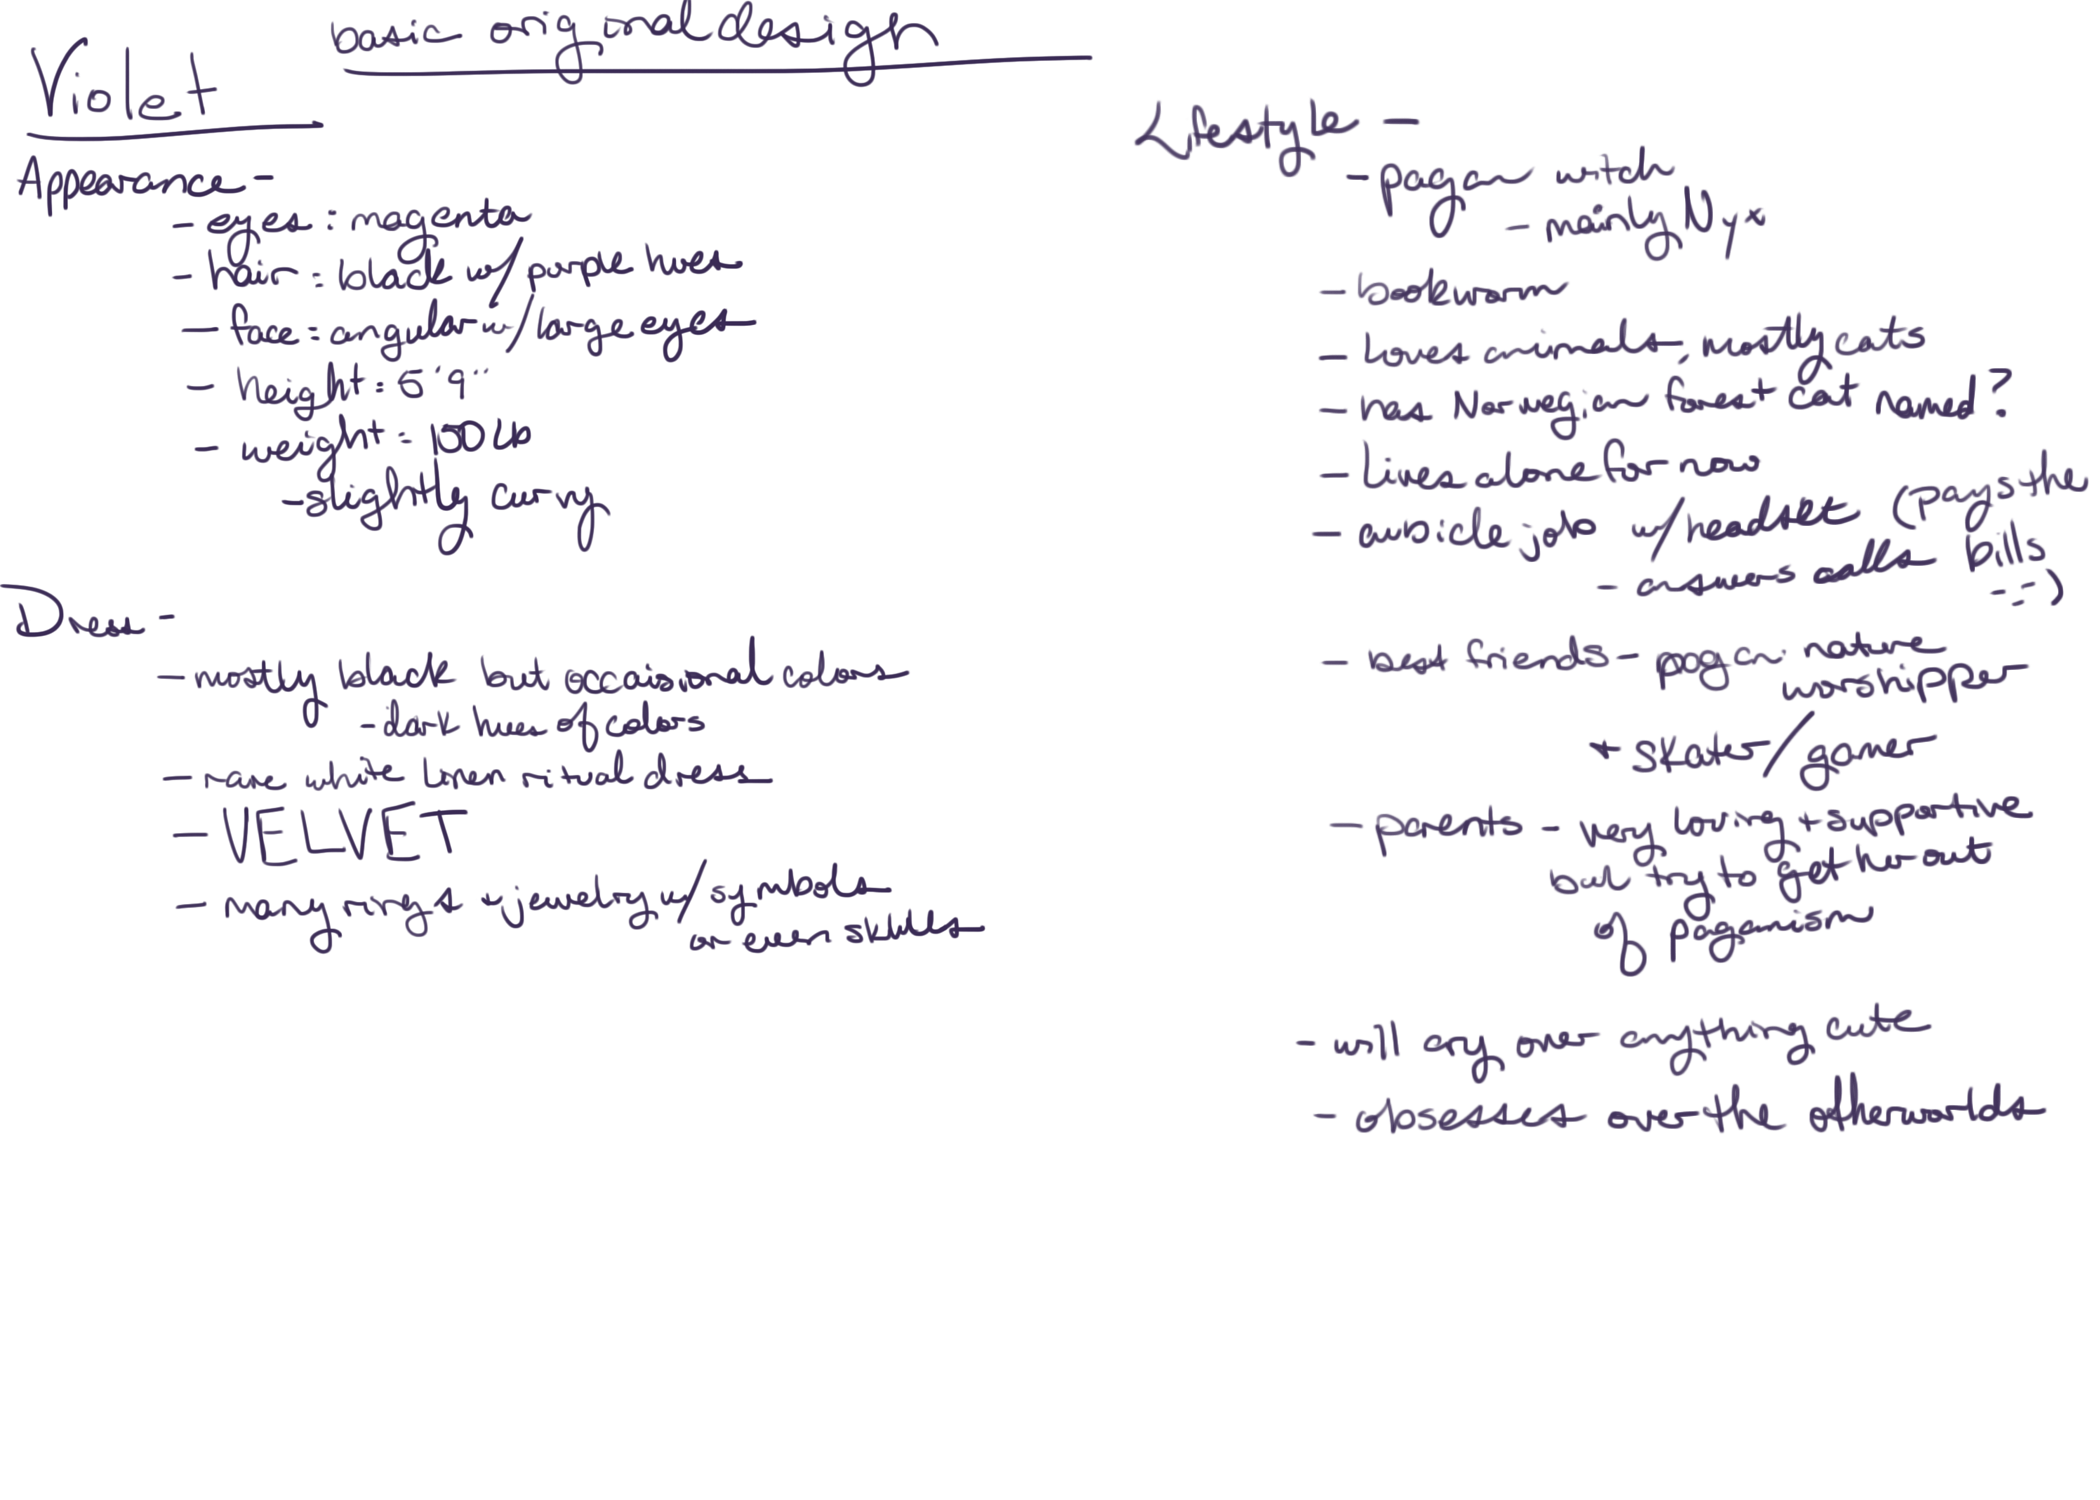 basic original design
Violet
Appearance -
- eyes: magenta
- hair: black w/ purple hues
- face: angular w/ large eyes
- height: 5'9"
- weight: 150 Lb
- slightly curvy
Dress -
- mostly black but occaisional colors
- dark hues of colors
- rare white linen ritual dress
- VELVET
- many rings + jewelry w/ symbols
or even skulls
Lifestyle -
- pagan witch
- mainly Nyx
- bookworm
- loves animals, mostly cats
- has Norwegian forest cat named?
- Lives alone for now
- cubicle job w/ headset (pays the
bills
- answers calls
-.-)
- best friends - pagan nature
worshipper
+ skater/gamer
- parents - very loving + supportive
but try to get her out
of paganism
- will cry over anything cute
- obsesses over the otherworlds